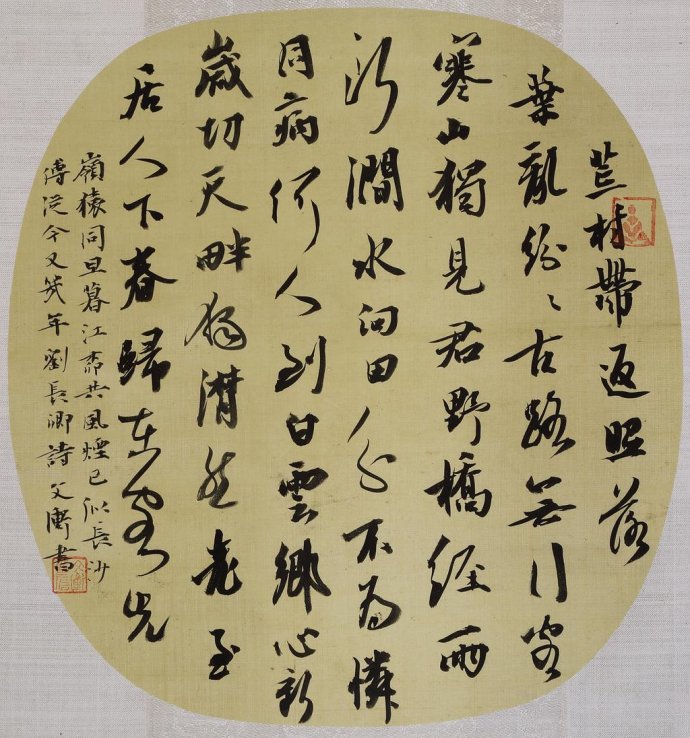 荒村帶返照落
葉亂紛〻古路無行客
寒山獨見君野橋經雨
斷澗水向田分不為憐
同病何人到白雲鄉心新
歲切天畔獨潸然老至
居人下春歸在客先
嶺猿同旦暮江柳共風煙已似長沙
傅從今又幾年劉長卿詩 書